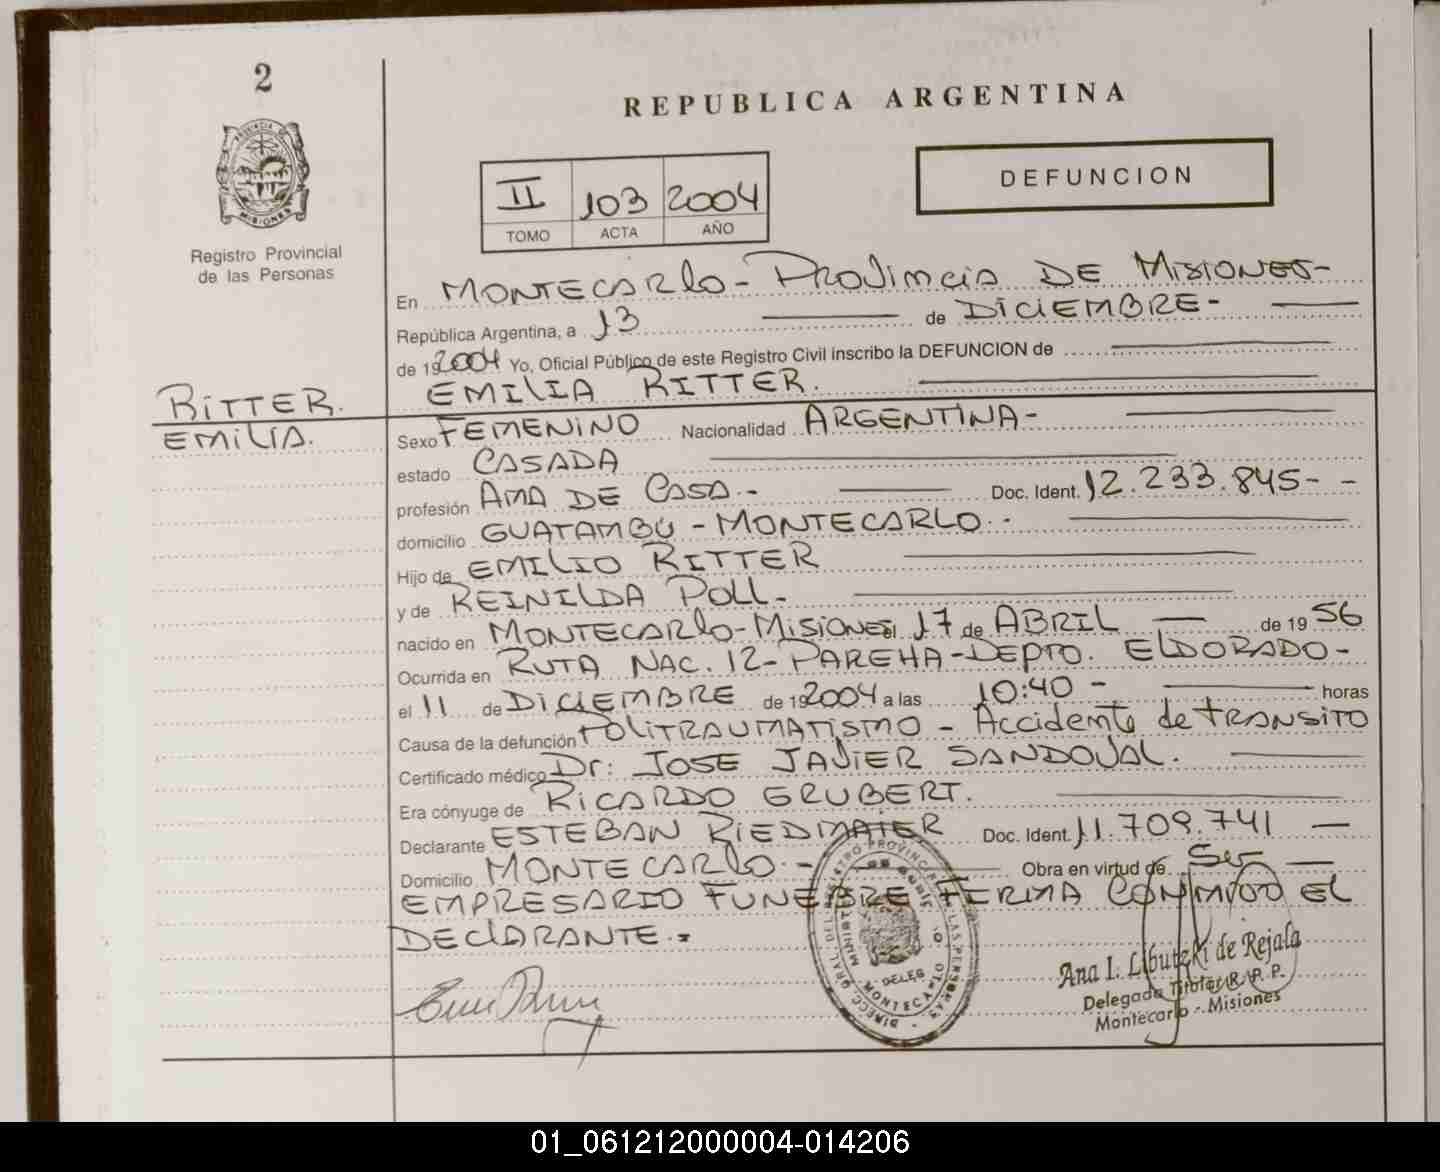 2
PROVINCIA DE
MISIONES
Registro Provincial
de las Personas
REPUBLICA ARGENTINA
II 103 2004
TOMO ACTA AÑO
DEFUNCION
En MONTECARLO - PROVINCIA DE MISIONES -
República Argentina, a 13 de DICIEMBRE -
de 192004 Yo, Oficial Público de este Registro Civil inscribo la DEFUNCION de
EMILIA RITTER.
RITTER.
EMILIA.
Sexo FEMENINO Nacionalidad ARGENTINA -
estado CASADA
profesión AMA DE CASA. - Doc. Ident. 12.233.845 - -
domicilio GUATAMBU - MONTECARLO. -
Hijo de EMILIO RITTER
y de REINILDA POLL. -
nacido en MONTECARLO - MISIONES el 17 de ABRIL de 19 56
Ocurrida en RUTA NAC. 12 - PAREHA - DEPTO. ELDORADO -
el 11 de DICIEMBRE de 192004 a las 10:40 - horas
Causa de la defunción POLITRAUMATISMO - Accidente de TRANSITO
Certificado médico Dr: JOSE JAVIER SANDOVAL.
Era cónyuge de RICARDO GRUBERT.
Declarante ESTEBAN RIEDMAIER Doc. Ident. 11.709.741 -
Domicilio MONTECARLO. - Obra en virtud de Ser
EMPRESARIO FUNEBRE FIRMA CONMIGO EL
DECLARANTE. =
Ana I. Libutzki de Rejala
Delegada Titular R. P. P.
Montecarlo - Misiones
01_061212000004-014206